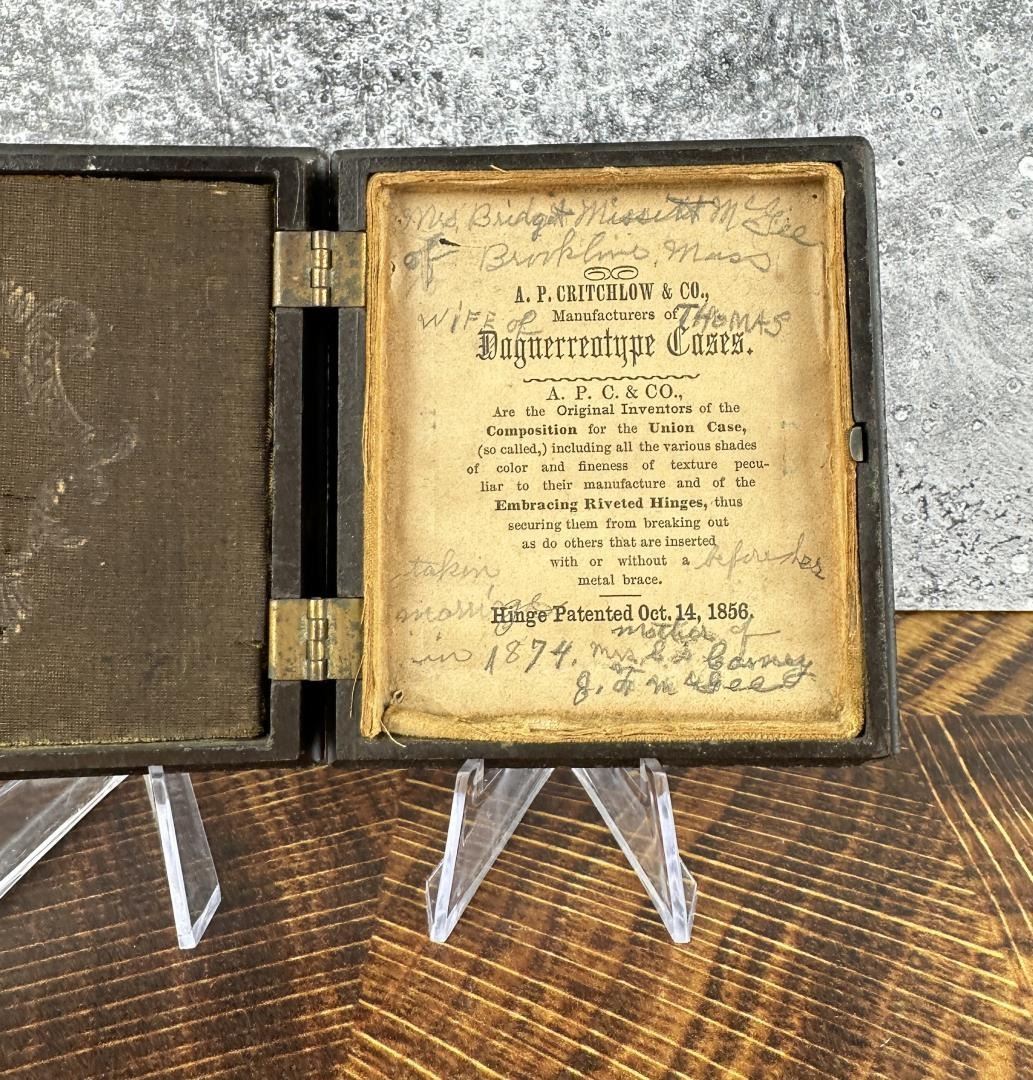 Mrs Bridget Missett McGee
of Brookline, Mass
A. P. CRITCHLOW & CO.,
Manufacturers of
WIFE of THOMAS
Daguerreotype Cases.
A. P. C. & CO.,
Are the Original Inventors of the
Composition for the Union Case,
(so called,) including all the various shades
of color and fineness of texture pecu-
liar to their manufacture and of the
Embracing Riveted Hinges, thus
securing them from breaking out
as do others that are inserted
with or without a
metal brace.
taken before her
marriage
Hinge Patented Oct. 14, 1856.
in 1874.
mother of
Mrs Carney
J. F McGee